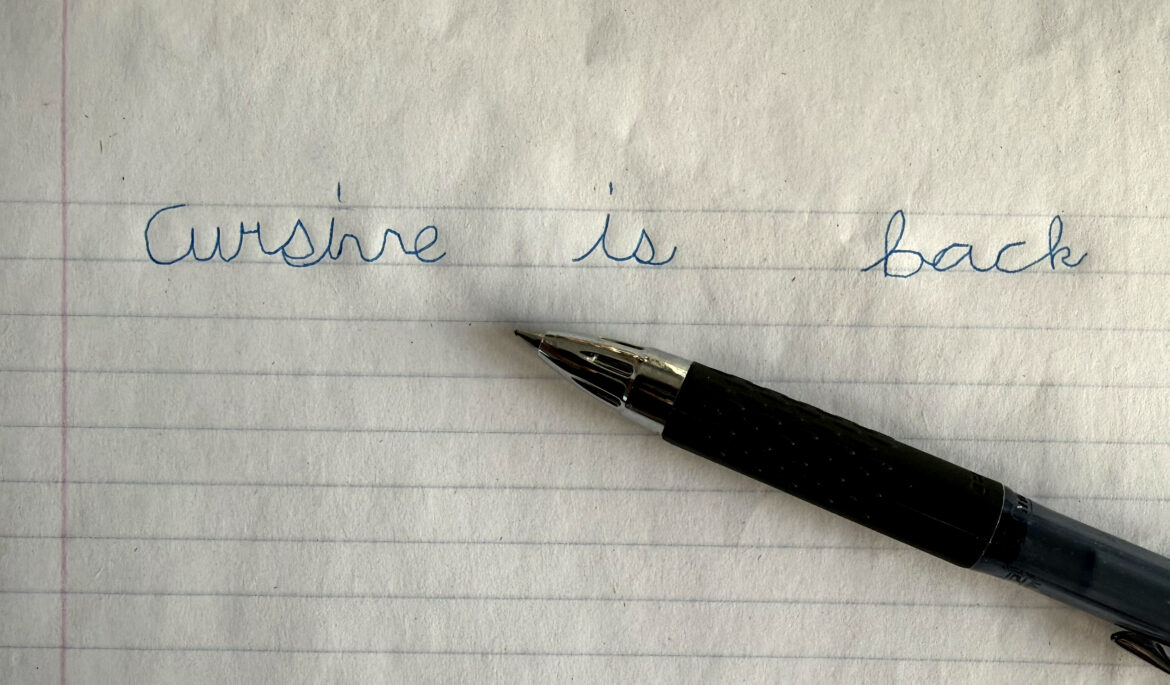 Cursive is back